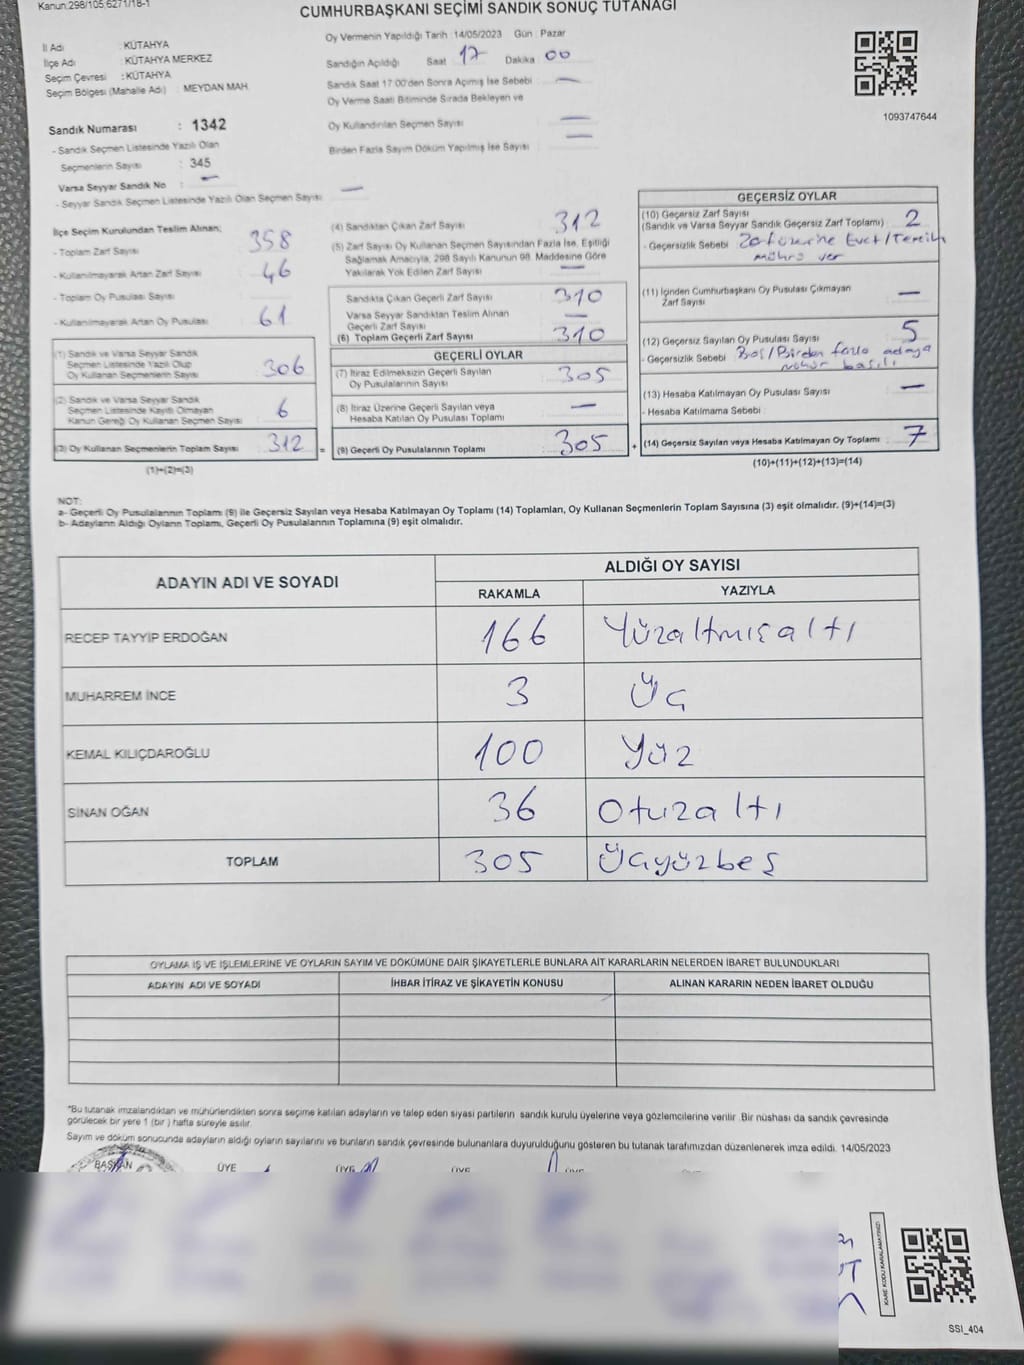 Kanun:298/105,6271/18-1
CUMHURBAŞKANI SEÇİMİ SANDIK SONUÇ TUTANAĞI
İl Adı : KÜTAHYA
İlçe Adı : KÜTAHYA MERKEZ
Seçim Çevresi : KÜTAHYA
Seçim Bölgesi (Mahalle Adı) : MEYDAN MAH.
Sandık Numarası : 1342
- Sandık Seçmen Listesinde Yazılı Olan
Seçmenlerin Sayısı : 345
Varsa Seyyar Sandık No : —
- Seyyar Sandık Seçmen Listesinde Yazılı Olan Seçmen Sayısı : —
Oy Vermenin Yapıldığı Tarih : 14/05/2023 Gün : Pazar
Sandığın Açıldığı Saat 17 Dakika 00
Sandık Saat 17.00'den Sonra Açılmış İse Sebebi —
Oy Verme Saati Bitiminde Sırada Bekleyen ve
Oy Kullandırılan Seçmen Sayısı —
Birden Fazla Sayım Döküm Yapılmış İse Sayısı —
1093747644
İlçe Seçim Kurulundan Teslim Alınan;
- Toplam Zarf Sayısı 358
- Kullanılmayarak Artan Zarf Sayısı 46
- Toplam Oy Pusulası Sayısı
- Kullanılmayarak Artan Oy Pusulası 61
(1) Sandık ve Varsa Seyyar Sandık
Seçmen Listesinde Yazılı Olup
Oy Kullanan Seçmenlerin Sayısı 306
(2) Sandık ve Varsa Seyyar Sandık
Seçmen Listesinde Kayıtlı Olmayan
Kanun Gereği Oy Kullanan Seçmen Sayısı 6
(3) Oy Kullanan Seçmenlerin Toplam Sayısı 312 =
(1)+(2)=(3)
(4) Sandıktan Çıkan Zarf Sayısı 312
(5) Zarf Sayısı Oy Kullanan Seçmen Sayısından Fazla İse, Eşitliği
Sağlamak Amacıyla, 298 Sayılı Kanunun 98. Maddesine Göre
Yakılarak Yok Edilen Zarf Sayısı —
Sandıkta Çıkan Geçerli Zarf Sayısı 310
Varsa Seyyar Sandıktan Teslim Alınan
Geçerli Zarf Sayısı —
(6) Toplam Geçerli Zarf Sayısı 310
GEÇERLİ OYLAR
(7) İtiraz Edilmeksizin Geçerli Sayılan
Oy Pusulalarının Sayısı 305
(8) İtiraz Üzerine Geçerli Sayılan veya
Hesaba Katılan Oy Pusulası Toplamı —
(9) Geçerli Oy Pusulalarının Toplamı 305 +
GEÇERSİZ OYLAR
(10) Geçersiz Zarf Sayısı
(Sandık ve Varsa Seyyar Sandık Geçersiz Zarf Toplamı) 2
- Geçersizlik Sebebi Zarf üzerine Evet/Tercih
mührü var
(11) İçinden Cumhurbaşkanı Oy Pusulası Çıkmayan
Zarf Sayısı —
(12) Geçersiz Sayılan Oy Pusulası Sayısı 5
- Geçersizlik Sebebi Boş/Birden fazla adaya
mühür basılı
(13) Hesaba Katılmayan Oy Pusulası Sayısı —
- Hesaba Katılmama Sebebi :
(14) Geçersiz Sayılan veya Hesaba Katılmayan Oy Toplamı 7
(10)+(11)+(12)+(13)=(14)
NOT:
a- Geçerli Oy Pusulalarının Toplamı (9) ile Geçersiz Sayılan veya Hesaba Katılmayan Oy Toplamı (14) Toplamları, Oy Kullanan Seçmenlerin Toplam Sayısına (3) eşit olmalıdır. (9)+(14)=(3)
b- Adayların Aldığı Oyların Toplamı, Geçerli Oy Pusulalarının Toplamına (9) eşit olmalıdır.
ADAYIN ADI VE SOYADI
ALDIĞI OY SAYISI
RAKAMLA YAZIYLA
RECEP TAYYİP ERDOĞAN 166 Yüzaltmışaltı
MUHARREM İNCE 3 Üç
KEMAL KILIÇDAROĞLU 100 Yüz
SİNAN OĞAN 36 Otuzaltı
TOPLAM 305 Üçyüzbeş
OYLAMA İŞ VE İŞLEMLERİNE VE OYLARIN SAYIM VE DÖKÜMÜNE DAİR ŞİKAYETLERLE BUNLARA AİT KARARLARIN NELERDEN İBARET BULUNDUKLARI
ADAYIN ADI VE SOYADI İHBAR İTİRAZ VE ŞİKAYETİN KONUSU ALINAN KARARIN NEDEN İBARET OLDUĞU
*Bu tutanak imzalandıktan ve mühürlendikten sonra seçime katılan adayların ve talep eden siyasi partilerin sandık kurulu üyelerine veya gözlemcilerine verilir. Bir nüshası da sandık çevresinde
görülecek bir yere 1 (bir) hafta süreyle asılır.
Sayım ve döküm sonucunda adayların aldığı oyların sayılarını ve bunların sandık çevresinde bulunanlara duyurulduğunu gösteren bu tutanak tarafımızdan düzenlenerek imza edildi. 14/05/2023
BAŞKAN ÜYE ÜYE ÜYE ÜYE
KARE KODU KARALAMAYINIZ!
SSI_404